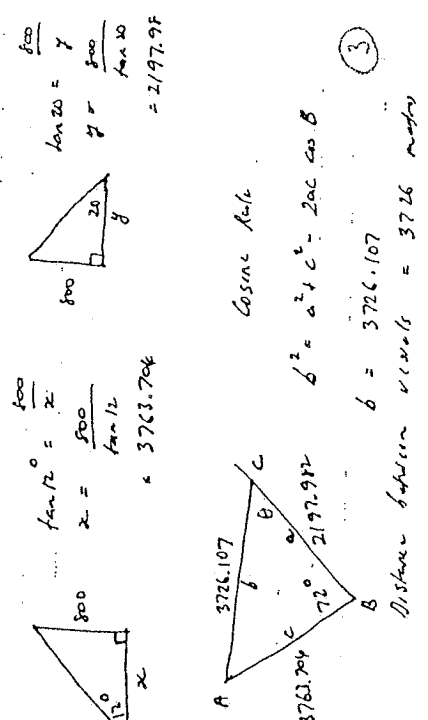 12°
800
x
tan 12° = 800/x
x = 800/tan 12
= 3763.704
800
20
y
tan 20 = 800/y
y = 800/tan 20
= 2197.98
A
3726.107
b
C
θ
a
2197.982
72°
c
3763.704
B
Cosine Rule
b² = a² + c² - 2ac cos B
b = 3726.107
Distance between vessels = 3726 metres
3